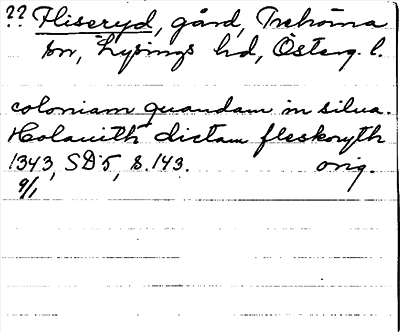 ?? Fliseryd, gård, Trehörna
sn, Lysings hd, Österg. l.
coloniam quandam in silua.
Holauith dictam fleskoryth
1343, SD 5, s. 143. orig.
9/1